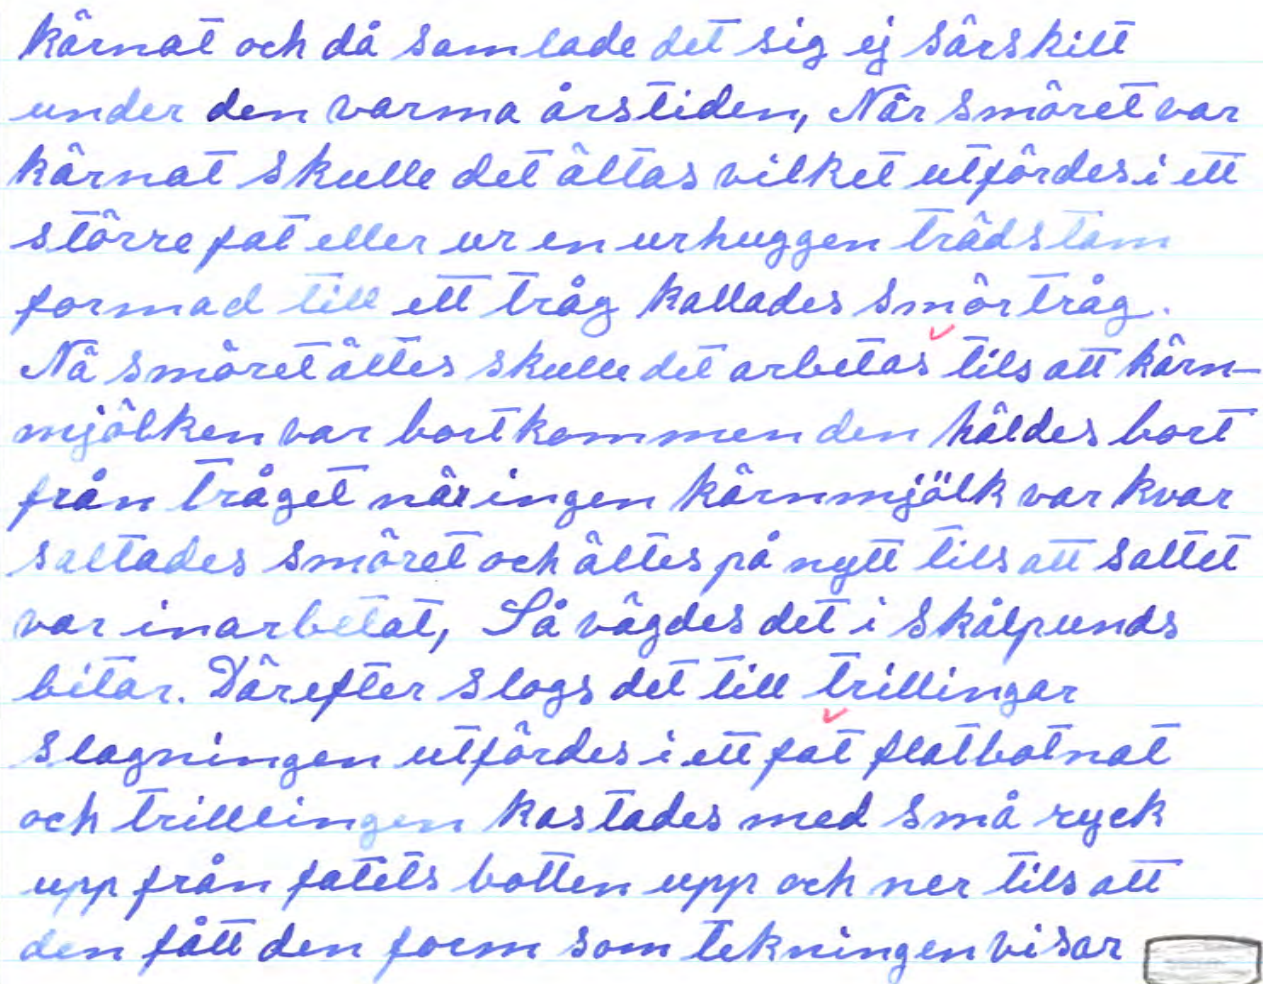 kärnat och då samlade det sig ej särskilt
under den varma årstiden, När smöret var
kärnat skulle det ältas vilket utfördes i ett
större fat eller ur en urhuggen trädstam
formad till ett tråg kallades smörtråg.
Nä smöret ältes skulle det arbetas tils att kärn-
mjölken var bortkommen den häldes bort
från tråget när ingen kärnmjölk var kvar
saltades smöret och ältes på nytt tils att saltet
var inarbetat, Så vägdes det i skålpunds
bitar. Därefter slogs det till trillingar
slagningen utfördes i ett fat flatbotnat
och trillingen kastades med små ryck
upp från fatets botten upp och ner tils att
den fått den form som tekningen visar